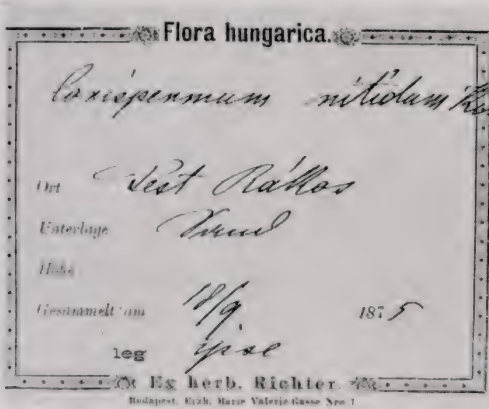 Flora hungarica.
Corispermum nitidum Ki
Ort Pest Rákos
Unterlage Sand
Höhe
Gesammelt am 18/9 1875
leg ipse
Ex herb. Richter.
Budapest, Erzh. Marie Valerie-Gasse Nro 1